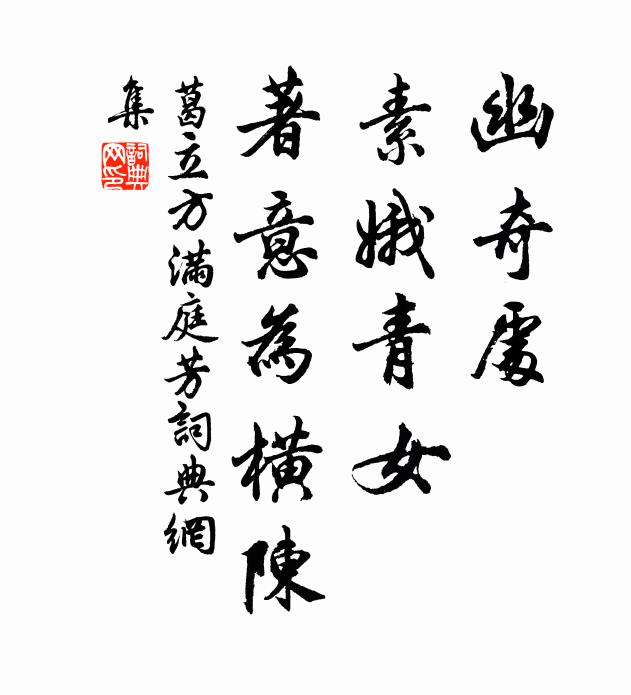 幽奇處
素娥青女
著意為橫陳
葛立方滿庭芳詞典網
集
詞典
网印